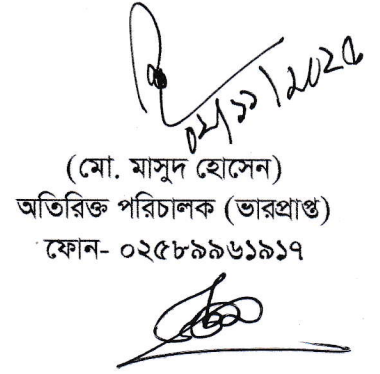 ০২/১১/২০২৫
(মো. মাসুদ হোসেন)
অতিরিক্ত পরিচালক (ভারপ্রাপ্ত)
ফোন- ০২৫৮৯৯৬১৯১৭